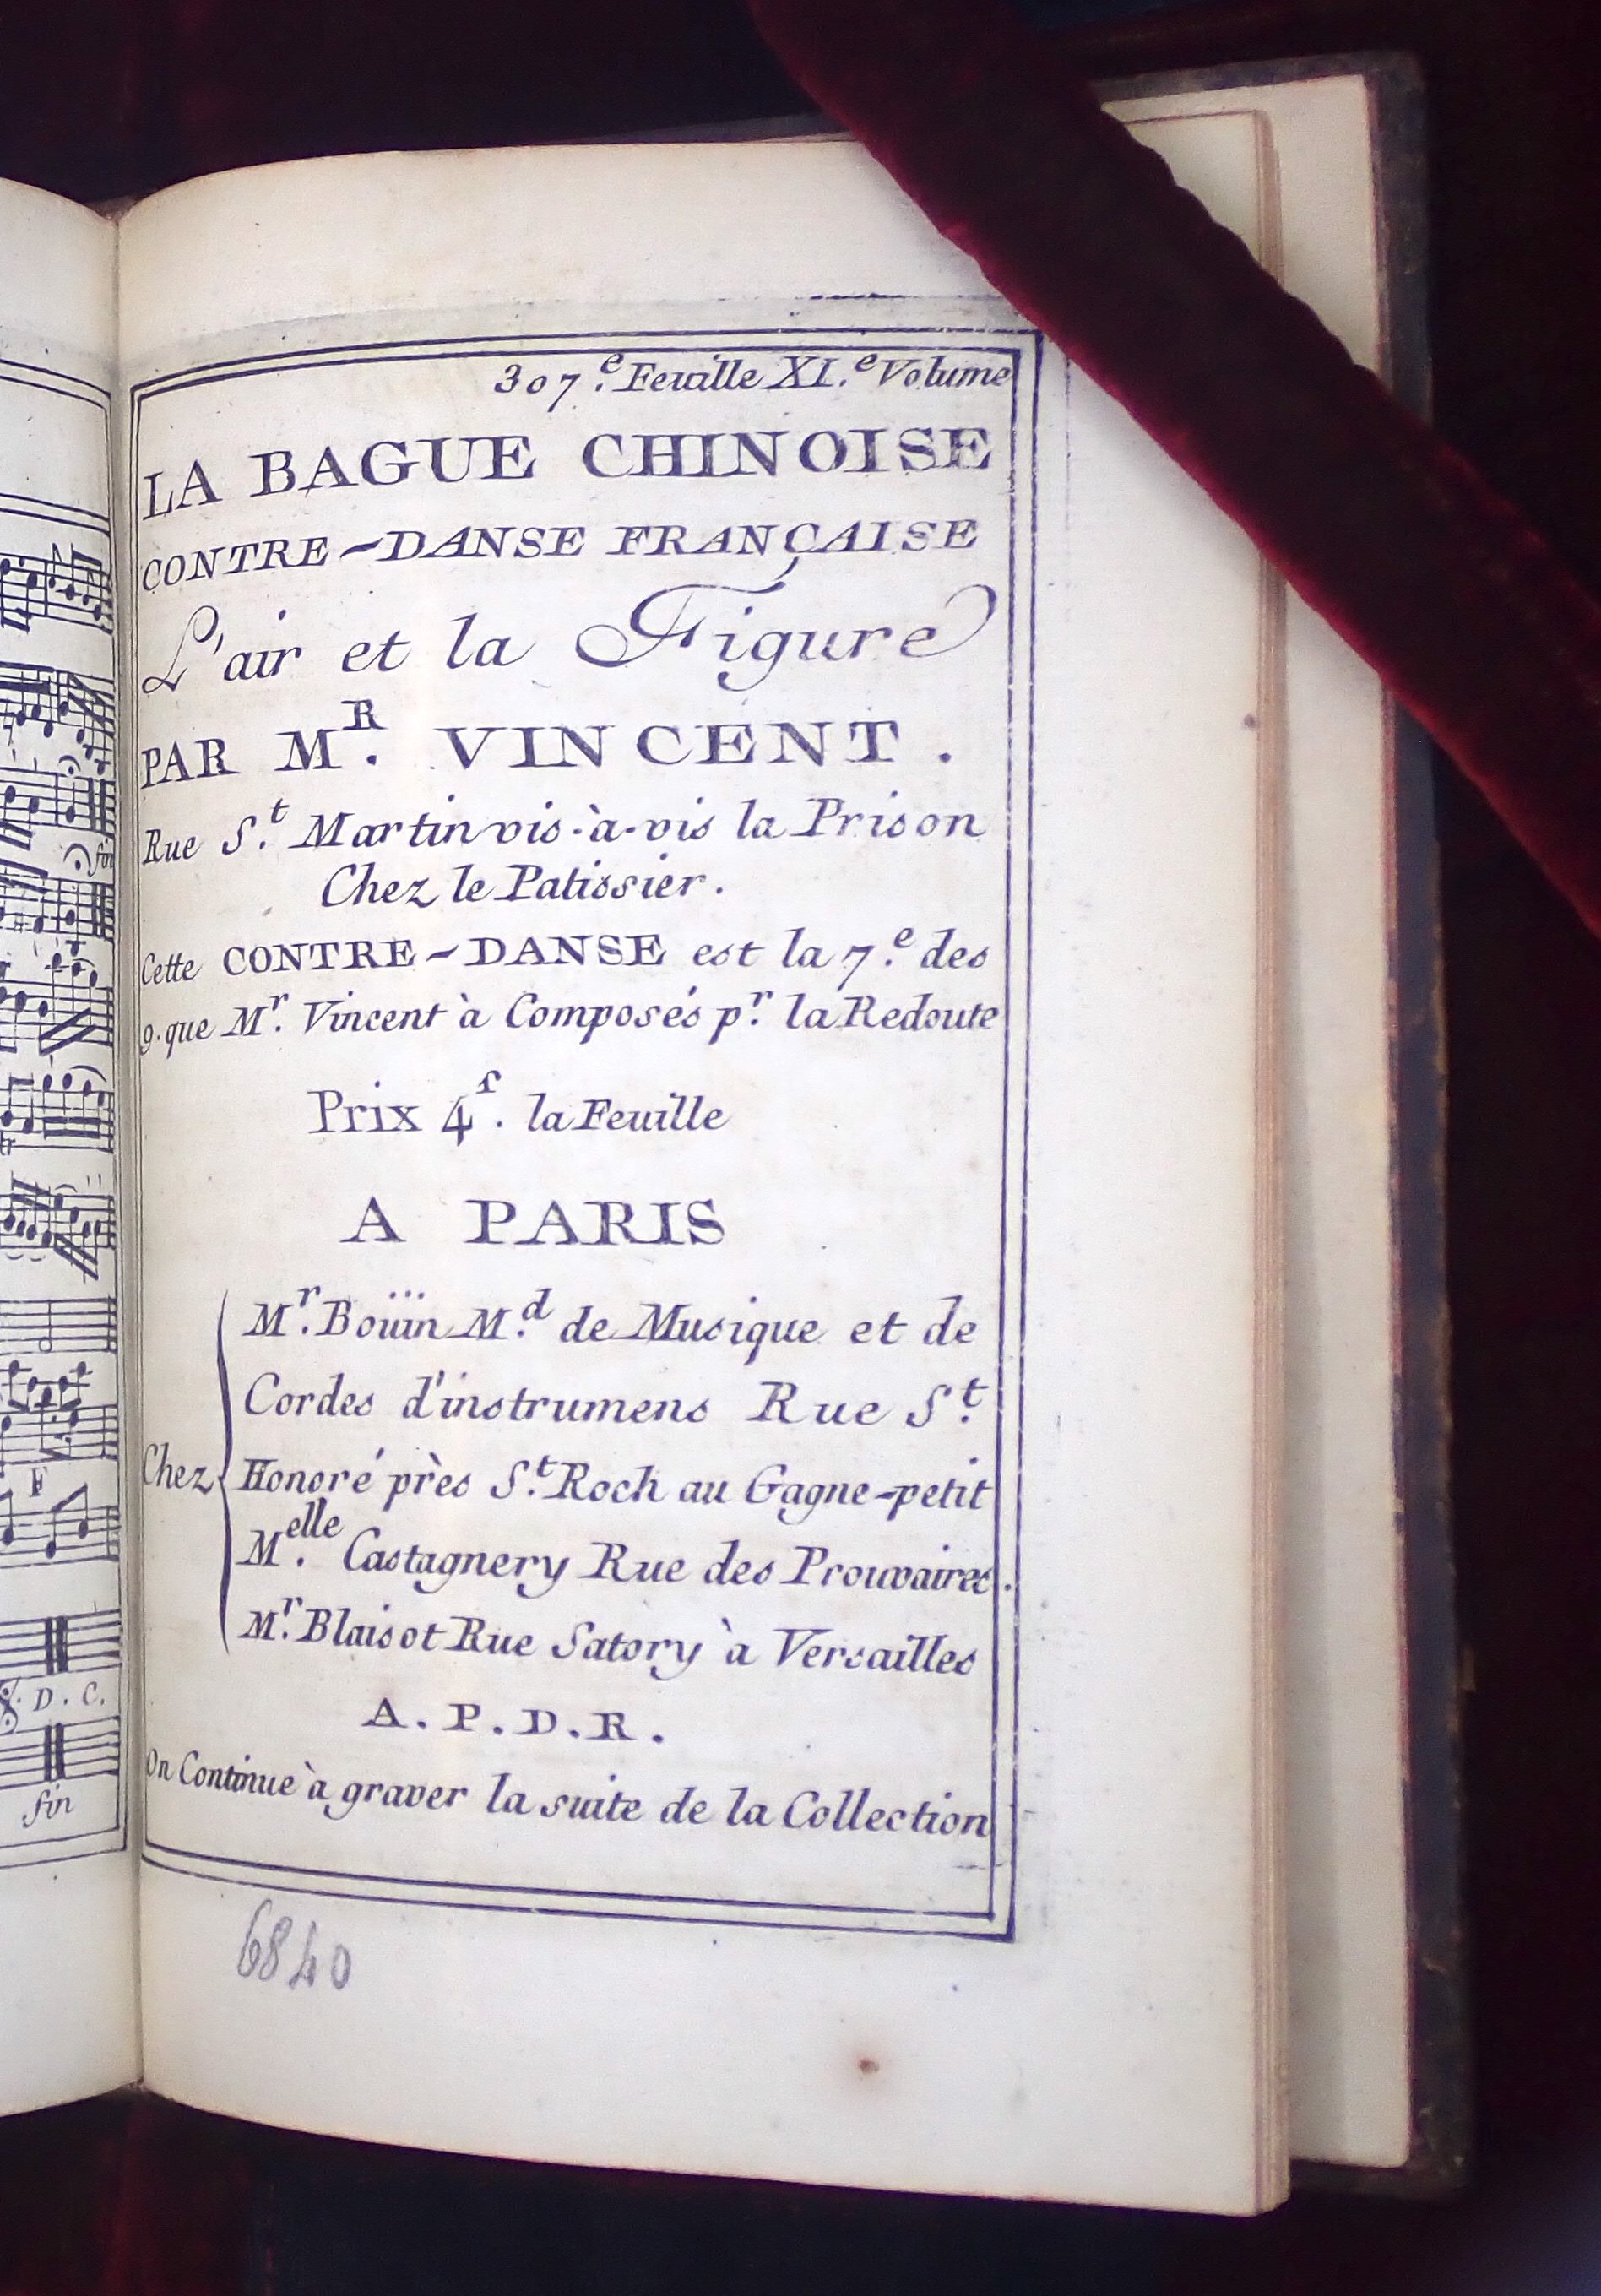 307.e Feuille XI.e Volume
LA BAGUE CHINOISE
CONTRE-DANSE FRANÇAISE
L'air et la Figure
PAR MR. VINCENT.
Rue St. Martin vis-à-vis la Prison
Chez le Patissier.
Cette CONTRE-DANSE est la 7.e des
9. que Mr. Vincent à Composés pr. la Redoute
Prix 4s. la Feuille
A PARIS
Mr. Boüin Md. de Musique et de
Cordes d'instrumens Rue St.
Chez Honoré près St. Roch au Gagne-petit
Melle. Castagnery Rue des Prouvaires.
Mr. Blaisot Rue Satory à Versailles
A.P.D.R.
On Continue à graver la suite de la Collection
6840
fin
F
D.C.
fin